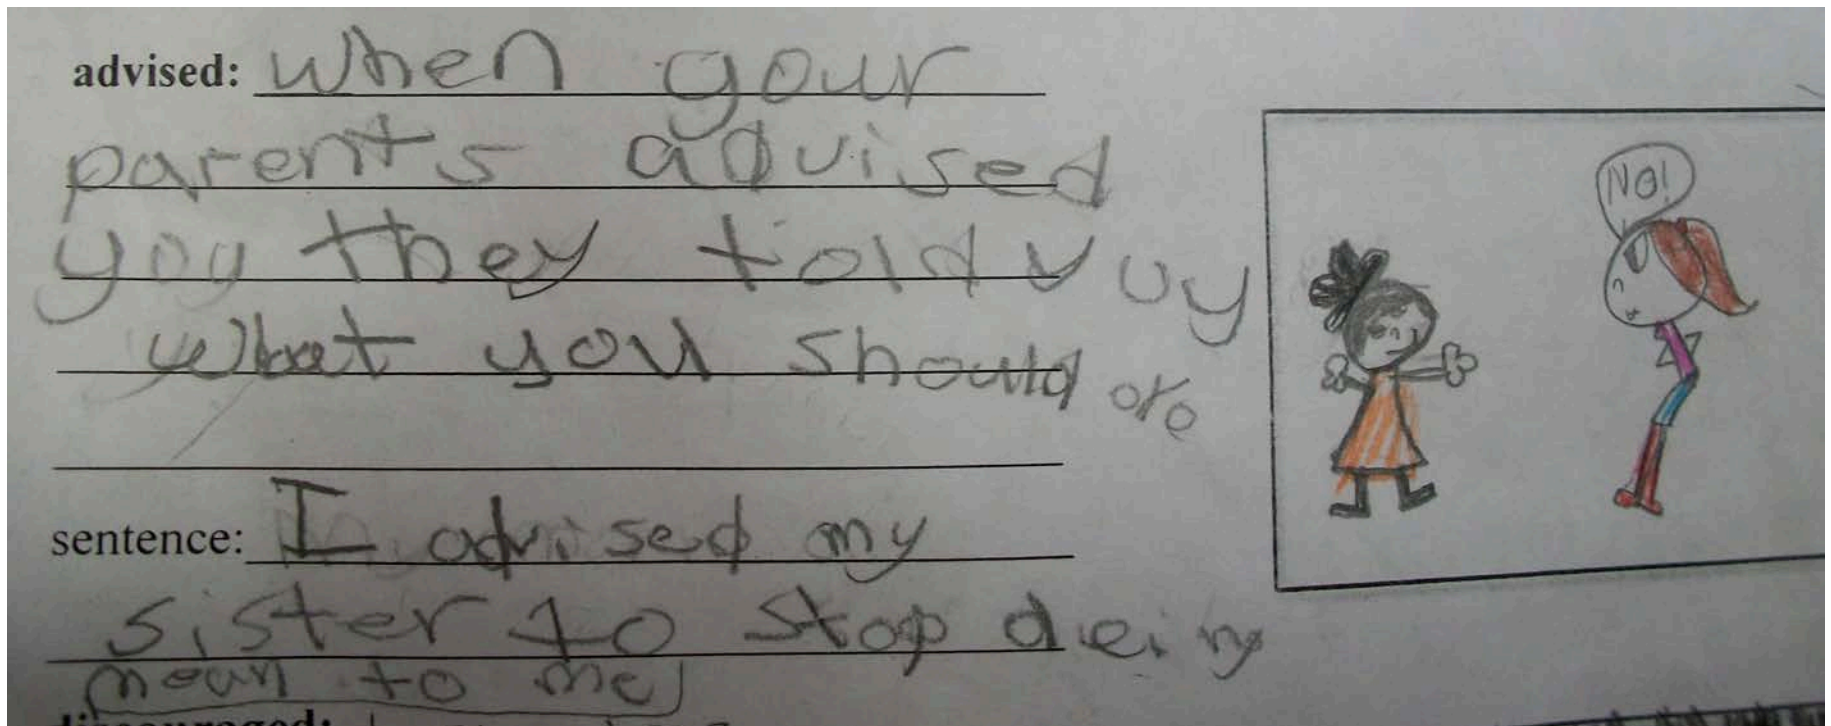 advised: when your
parents advised
you they told you
what you should do
NO!
sentence: I advised my
sister to stop deing
mean to me
discouraged: